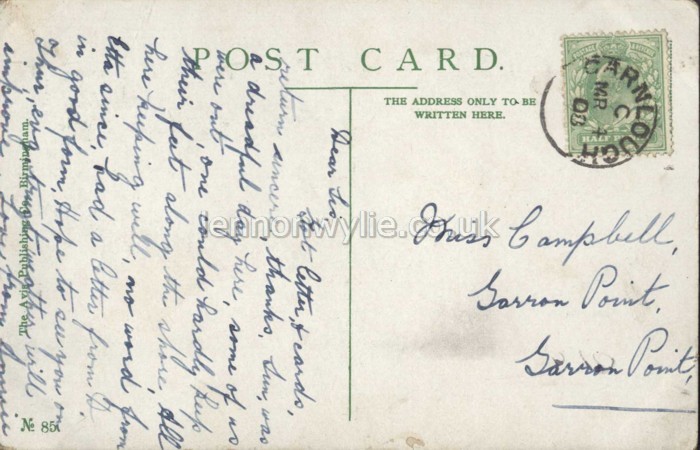 POST CARD.
THE ADDRESS ONLY TO BE
WRITTEN HERE.
CARNLOUGH
C
MR
08
HALF
Miss Campbell,
Garron Point,
Garron Point,
Dear Sis,
Got letter, & cards,
return sincere thanks. Sun, was
a dreadful day here, some of us
were out, one could hardly keep
their feet along the shore. All
here keeping well, no word from
Etta since, had a letter from
in good form, Hope to see you on
Thur. evg. trust matter will
improve. Love from
The Avis Publishing Co., Birmingham.
№ 85
lennonwylie.co.uk